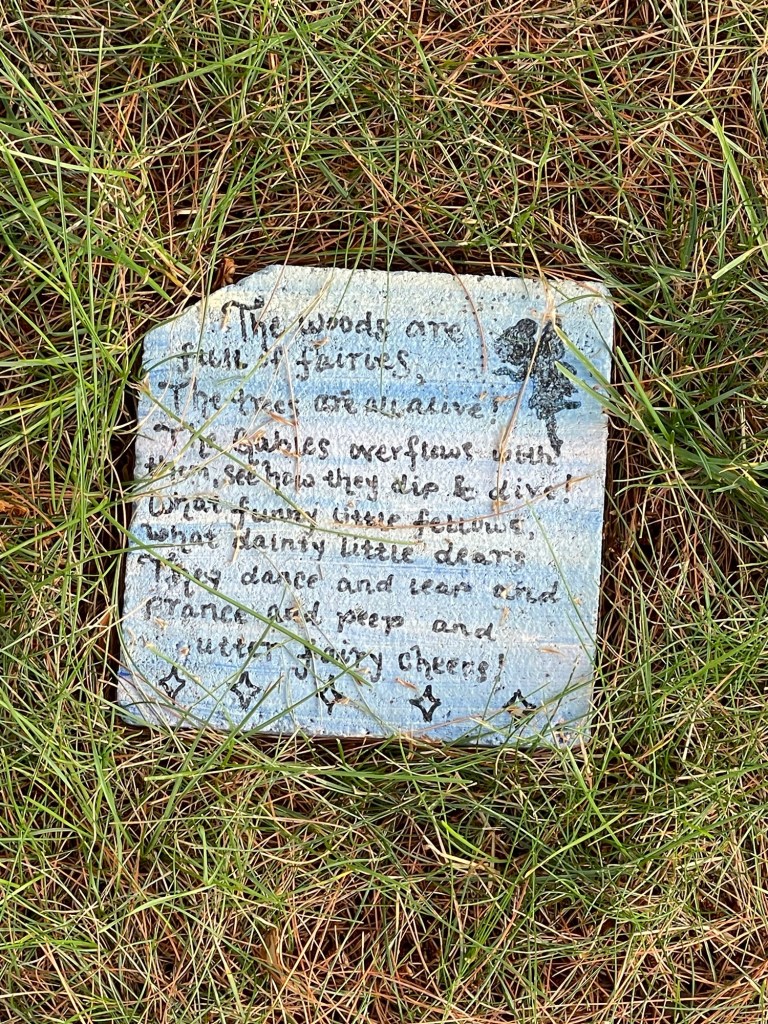 The woods are
full of fairies,
The trees are all alive!
The Gables overflows with
them, see how they dip & dive!
What funny little fellows,
What dainty little dears
They dance and leap and
prance and peep and
utter fairy cheers!